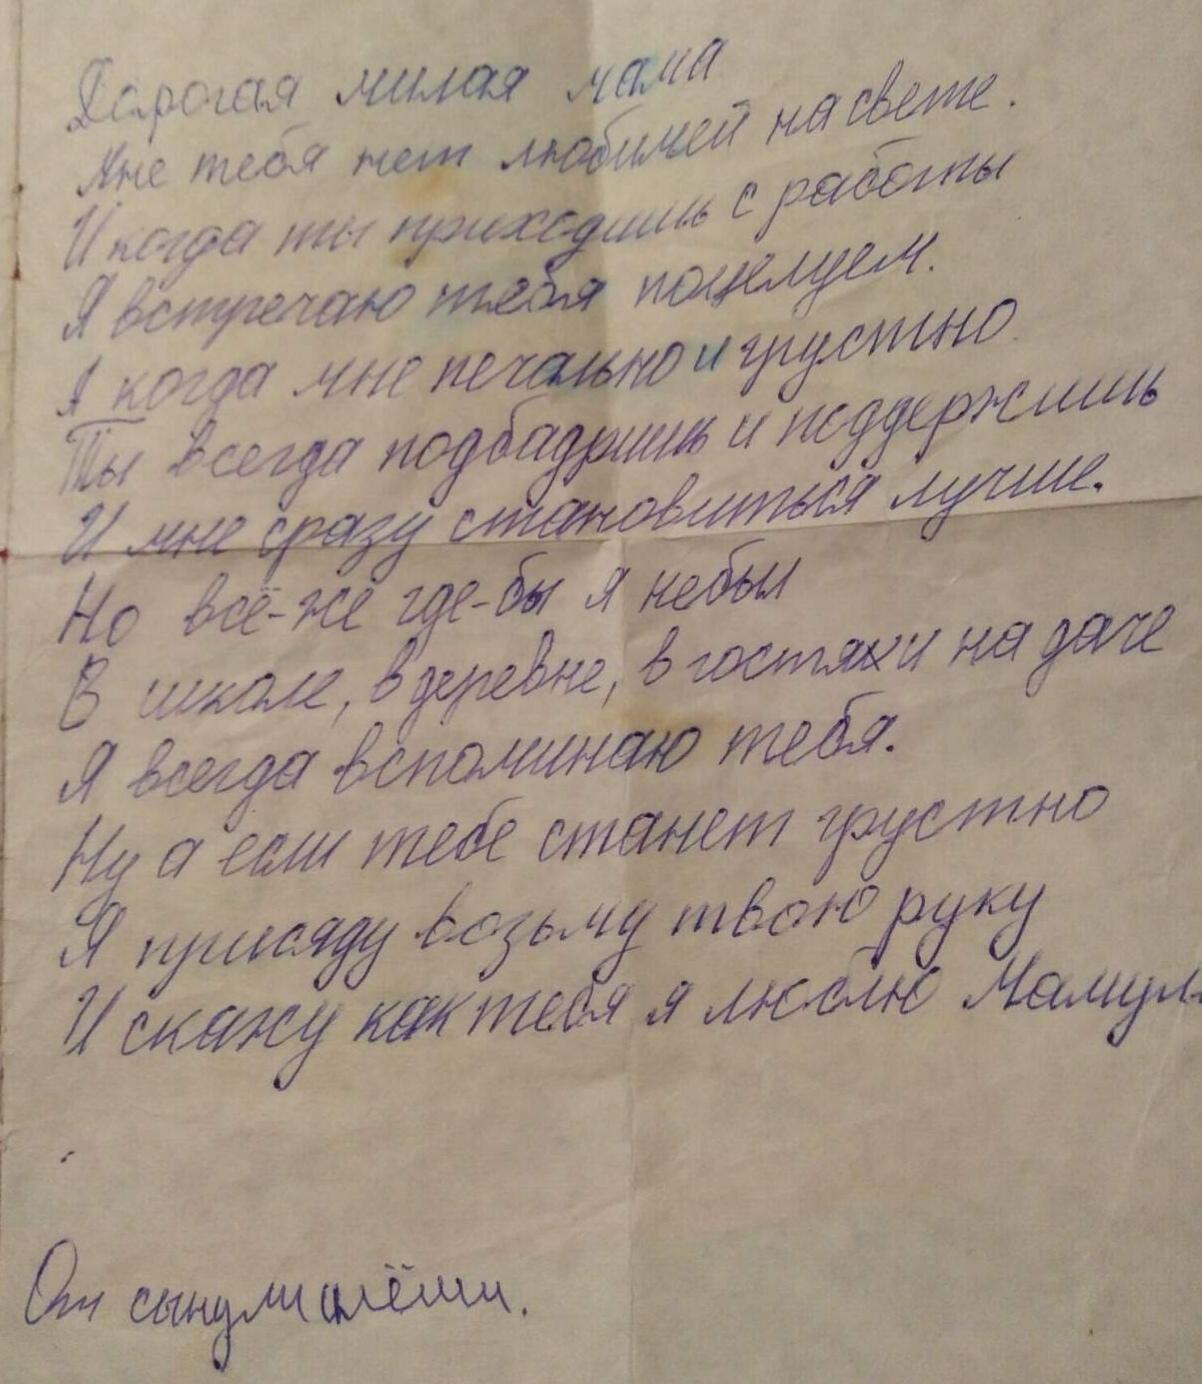 Дорогая милая мама
Мне тебя нет любимей на свете.
И когда ты приходишь с работы
Я встречаю тебя поцелуем.
А когда мне печально и грустно
Ты всегда подбадришь и поддержишь
И мне сразу становиться лучше.
Но всё-же где-бы я небыл
В школе, в деревне, в гостях и на даче
Я всегда вспоминаю тебя.
Ну а если тебе станет грустно
Я присяду возьму твою руку
И скажу как тебя я люблю Мамул
От сынули алёши.